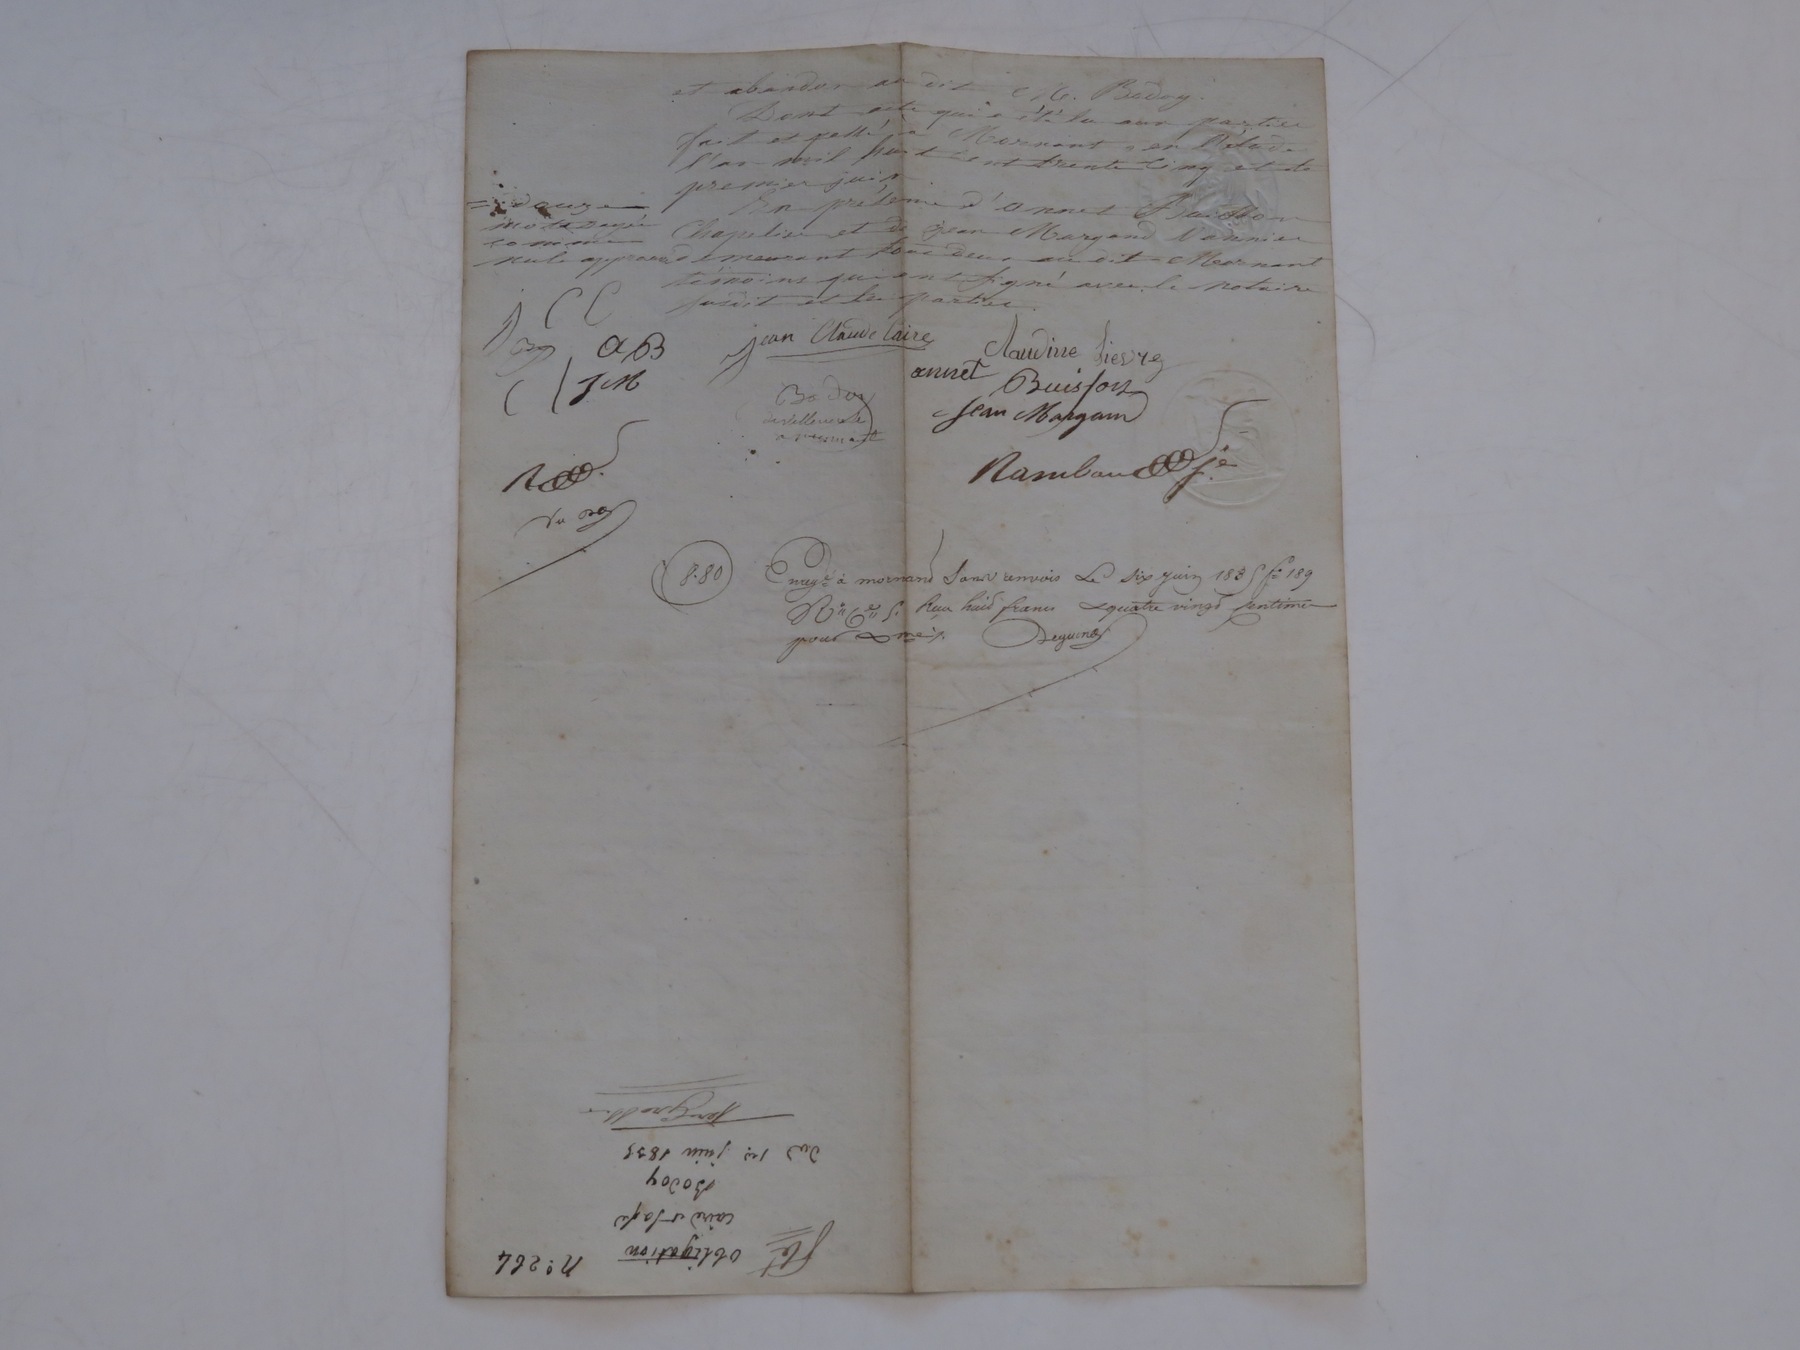 et abandon au dit M. Bodoy.
Dont acte qui a été lu aux parties
fait et passé à Mornant, en l'étude
l'an mil huit cent trente cinq et le
premier juin
En présence d'annet Buisson
Chapelier et de jean Margand Vannier
demeurant tous deux au dit Mornant
témoins qui ont signé avec le notaire
susdit et les parties.
= douze
mots rayés
comme
nuls approuvé
J C C
AB
JM
jean Claude Caire
Claudine
annet Buisson
Jean Margand
Bodoy
Rambaud je
8.80
Enregé à mornand sans renvois Le six juin 1835 fo 189
Reçu huid francs quatre vingd sentimes
pour
N.o 264
obligation
Caire et
Bodoy
du 1er juin 1835